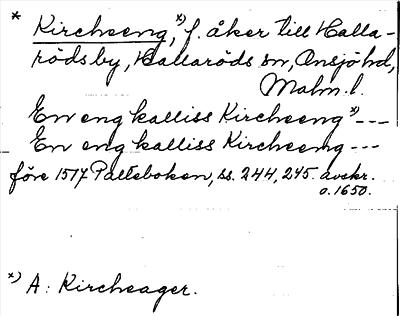 * Kircheeng,*) f. åker till Halla-
rödsby, Hallaröds sn, Onsjö hd,
Malm. l.
En eng kalliss Kircheeng *) ---
En eng kalliss Kircheeng ---
före 1517 Palteboken, ss. 244, 245. avskr.
o. 1650.
*) A: Kircheager.